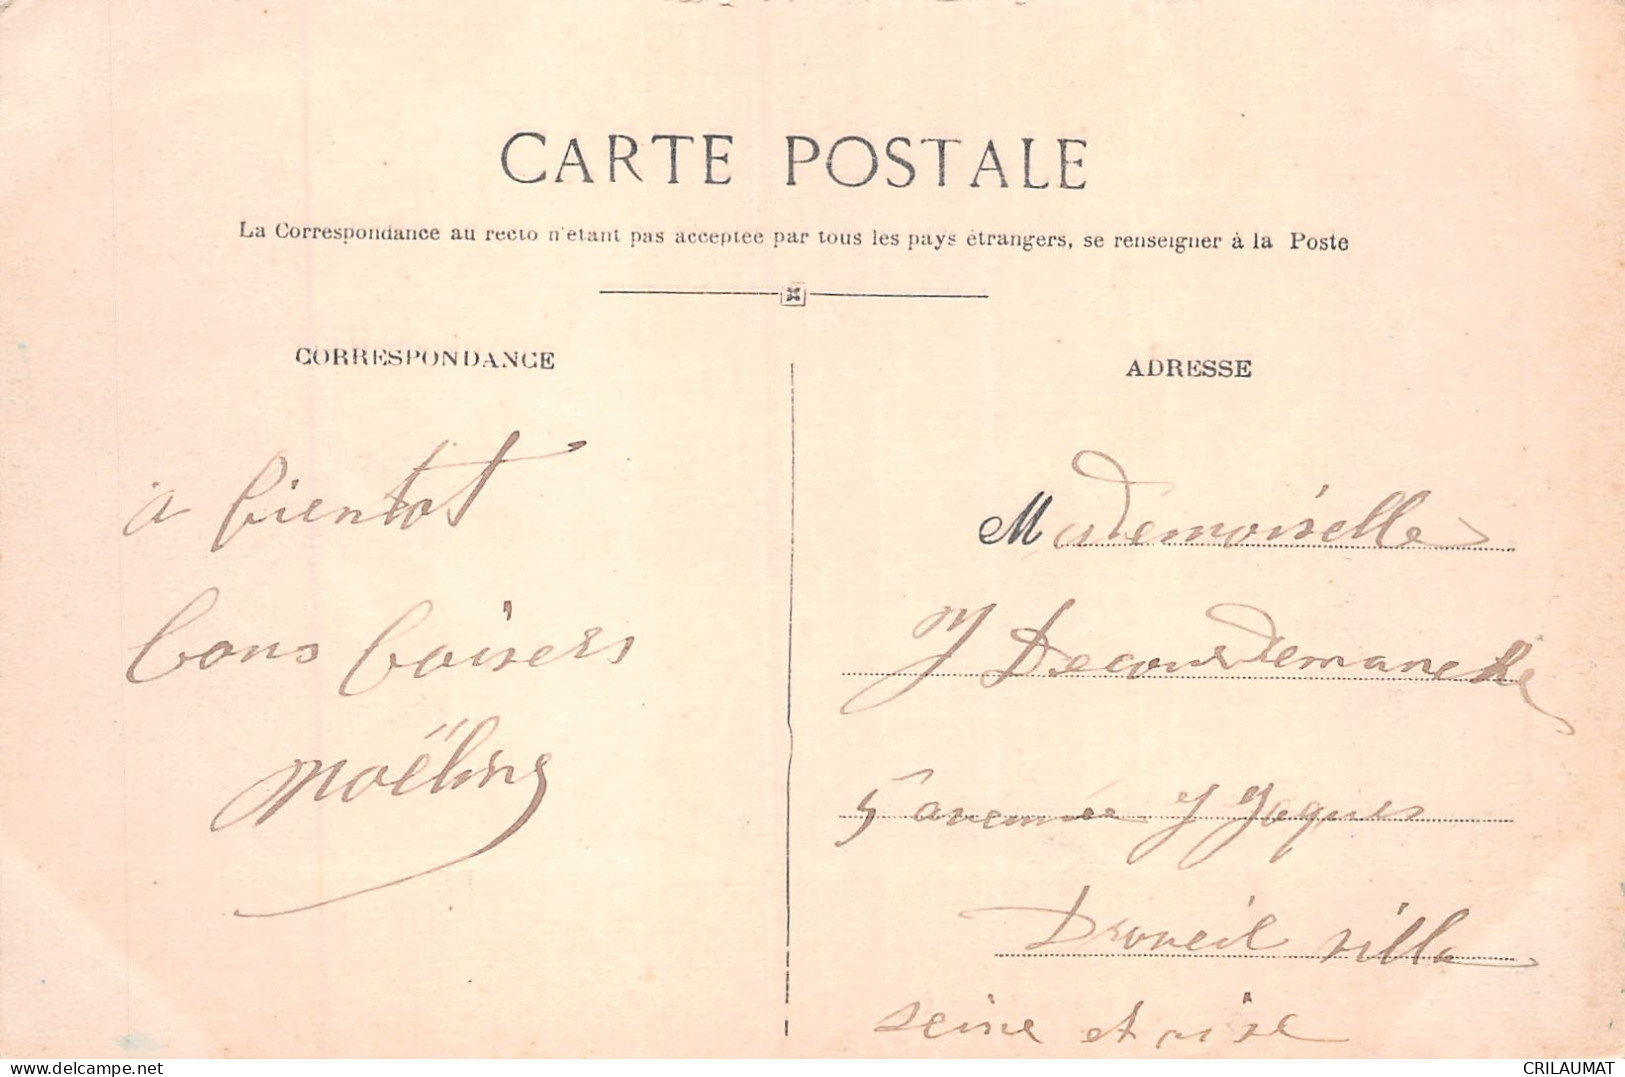 CARTE POSTALE
La Correspondance au recto n'étant pas acceptée par tous les pays étrangers, se renseigner à la Poste
CORRESPONDANCE
a bientot
bons baisers
Noëline
ADRESSE
Mademoiselle
J Decourdemanche
5 avenuée J Jaques
Draveil villa
seine et oise
delcampe.net
CRILAUMAT